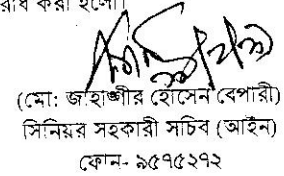 করা হলো।
(মো: জাহাঙ্গীর হোসেন বেপারী)
সিনিয়র সহকারী সচিব (আইন)
ফোন- ৯৫৭৫২৭২